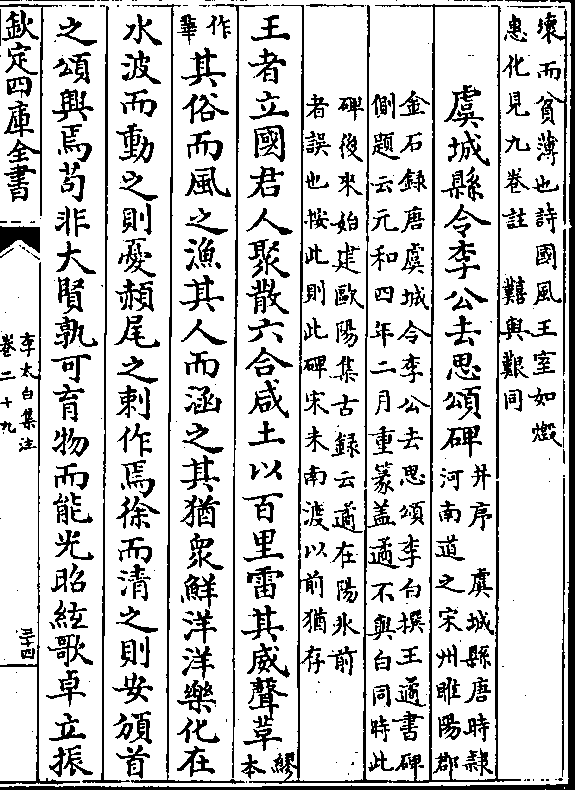 壞而貧薄也詩國風王室如燬
惠化見九卷註　囏與艱同
虞城縣令李公去思頌碑
并序　虞城縣唐時隸
河南道之宋州睢陽郡
金石錄唐虞城令李公去思頌李白撰王遹書碑
側題云元和四年二月重篆盖遹不與白同時此
碑後來始建歐陽集古録云遹在陽氷前
者誤也按此則此碑宋未南渡以前猶存
王者立國君人聚散六合咸土以百里雷其威聲草
繆本
作華
其俗而風之漁其人而涵之其猶衆鮮洋洋樂化在
水波而動之則憂赬尾之刺作焉徐而清之則安頒首
之頌興焉茍非大賢孰可育物而能光昭絃歌卓立振
欽定四庫全書
李太白集注
卷二十九
三十四